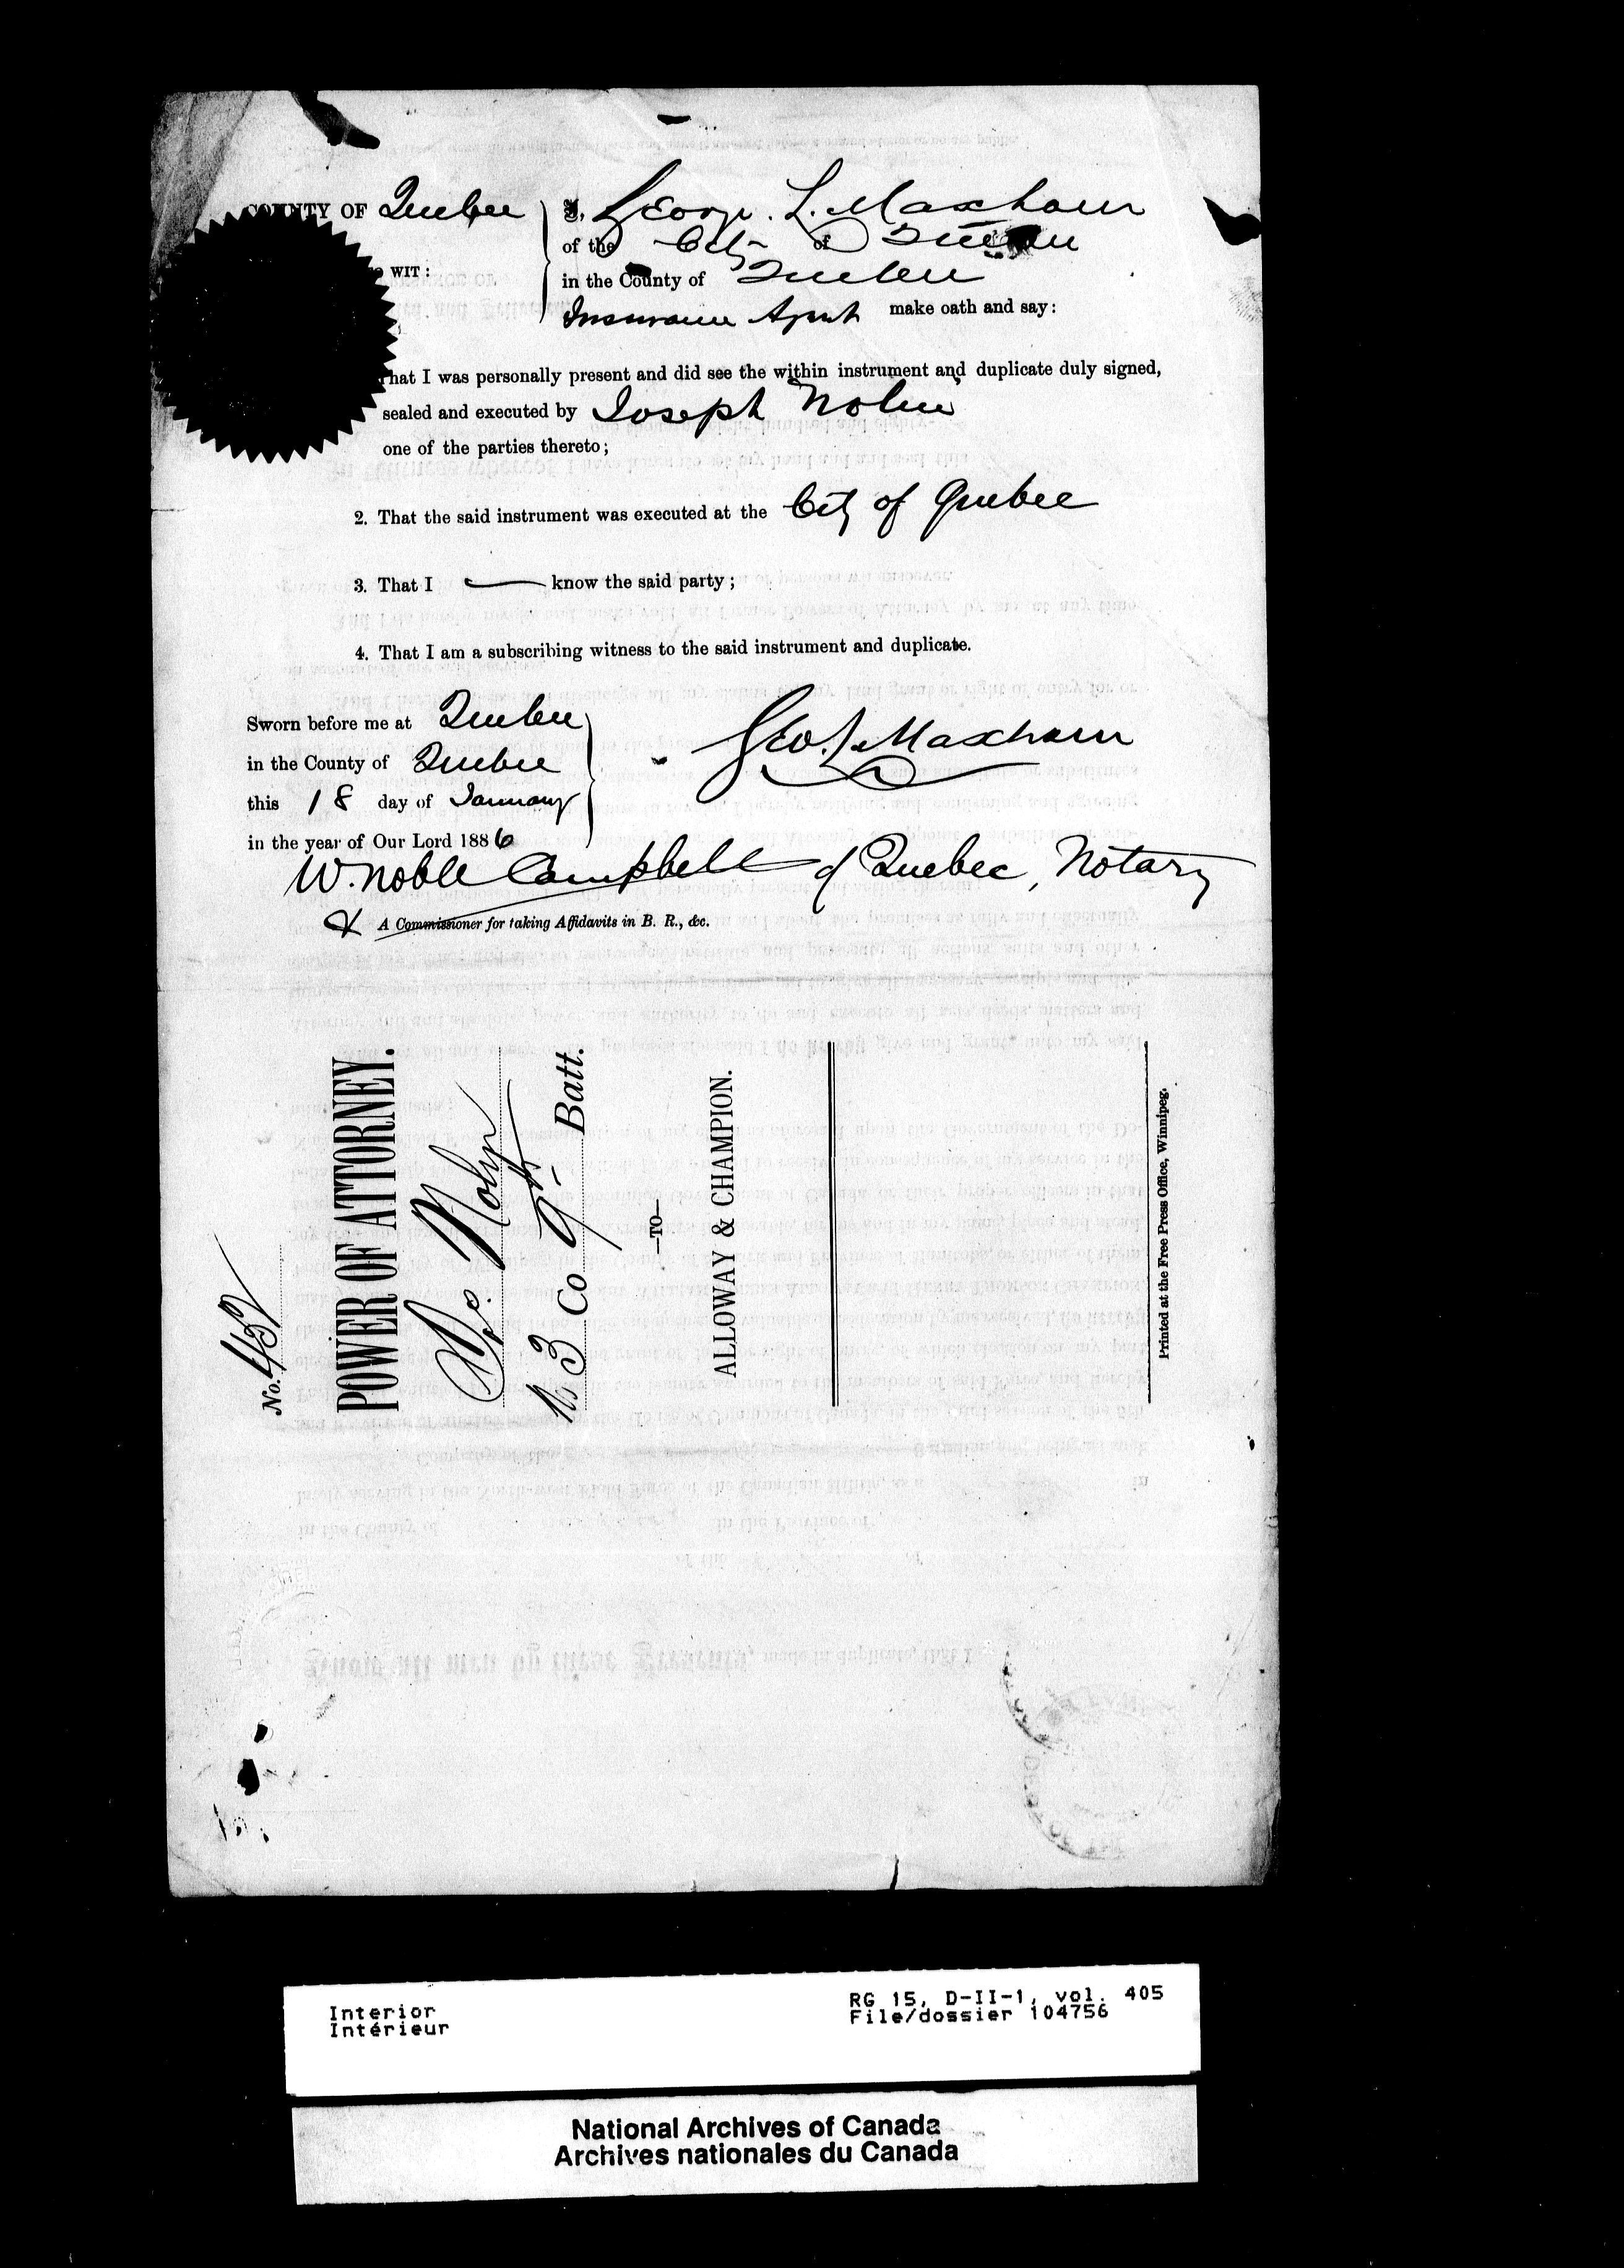 COUNTY OF Quebec
I, George L. Maxham
of the City of Quebec
WIT :
in the County of Quebec
Insurance Agent make oath and say:
That I was personally present and did see the within instrument and duplicate duly signed,
sealed and executed by Joseph Nolin
one of the parties thereto;
2. That the said instrument was executed at the City of Quebec
3. That I — know the said party;
4. That I am a subscribing witness to the said instrument and duplicate.
Sworn before me at Quebec
in the County of Quebec
this 18 day of January
in the year of Our Lord 1886
Geo. L Maxham
W. Noble Campbell of Quebec, Notary
A Commissioner for taking Affidavits in B. R., &c.
No. 452
POWER OF ATTORNEY.
Jos. Nolin
No 3 Co 9th Batt.
—TO—
ALLOWAY & CHAMPION.
Printed at the Free Press Office, Winnipeg.
Interior
Intérieur
RG 15, D-II-1, vol. 405
File/dossier 104756
National Archives of Canada
Archives nationales du Canada